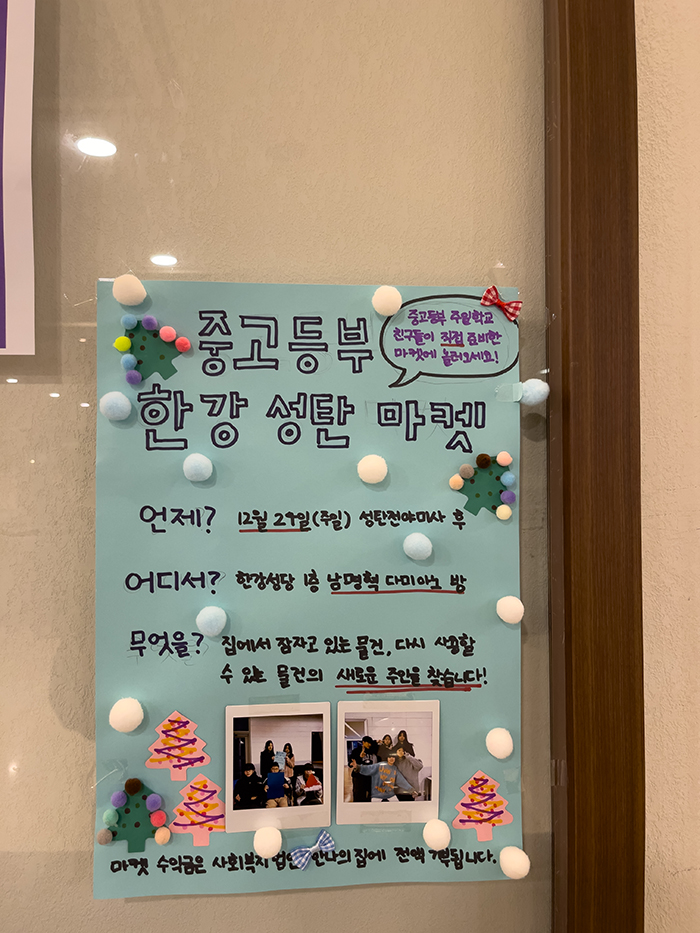 중고등부
한강 성탄 마켓
중고등부 주일학교
친구들이 직접 준비한
마켓에 놀러오세요!
언제? 12월 24일(주일) 성탄전야미사 후
어디서? 한강성당 1층 남명혁 다미아노 방
무엇을? 집에서 잠자고 있는 물건, 다시 사용할
수 있는 물건의 새로운 주인을 찾습니다!
마켓 수익금은 사회복지법인 안나의집에 전액 기부됩니다.